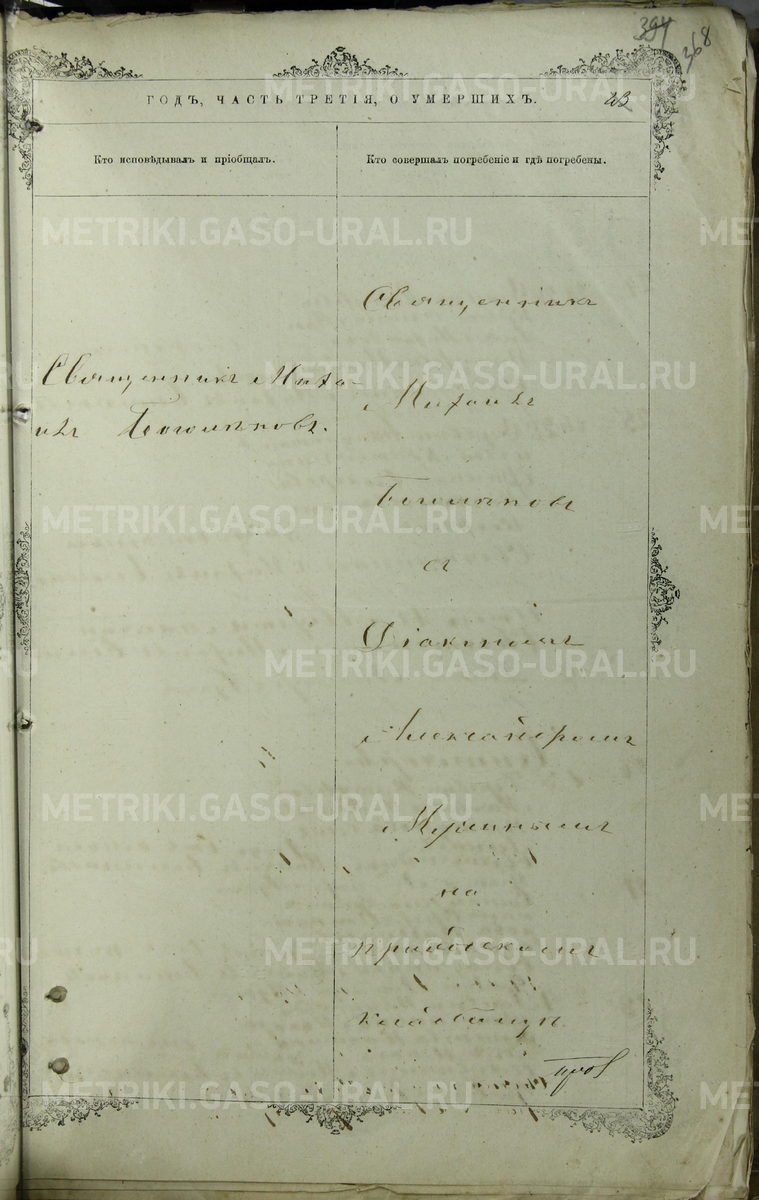 394
368
ГОДЪ, ЧАСТЬ ТРЕТІЯ, О УМЕРШИХЪ.
23
Кто исповѣдывалъ и пріобщалъ.
Кто совершалъ погребеніе и гдѣ погребены.
Священникъ Миха-
илъ
Священникъ
Михаилъ
съ
Діакономъ
Александромъ
на
приходскомъ
кладбищѣ
METRIKI.GASO-URAL.RU